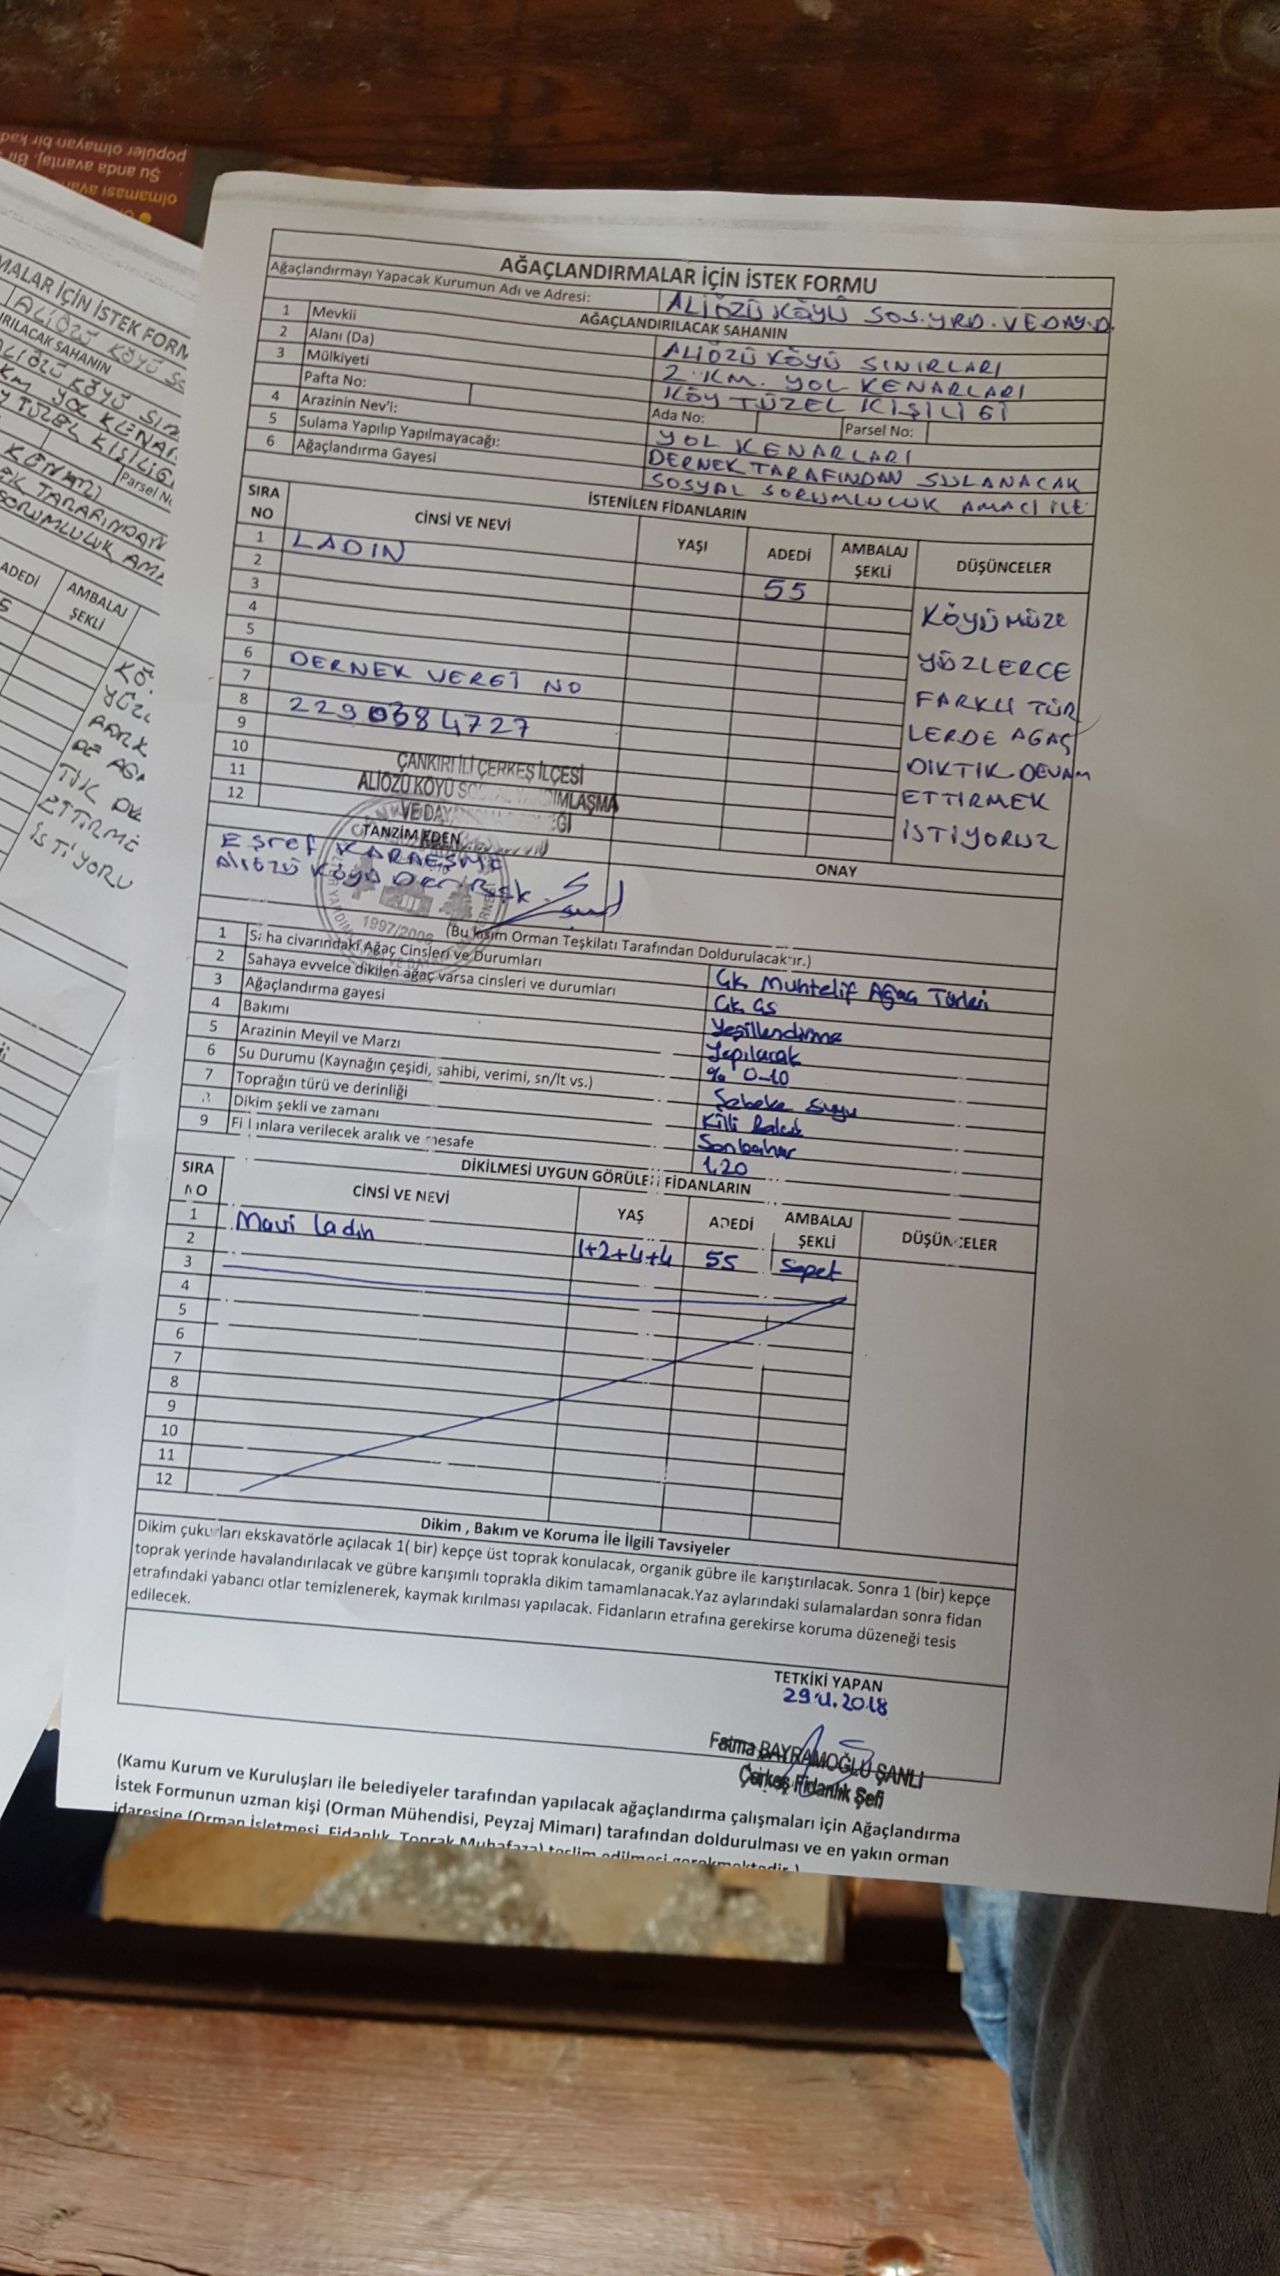 popüler olmayan bir
Şu anda avantaj. Bir
olmaması
AĞAÇLANDIRMALAR İÇİN İSTEK FORMU
Ağaçlandırmayı Yapacak Kurumun Adı ve Adresi: ALİÖZÜ KÖYÜ SOS.YRD.VE DAY.D.
AĞAÇLANDIRILACAK SAHANIN
1 Mevkii ALİÖZÜ KÖYÜ SINIRLARI
2 Alanı (Da) 2 KM. YOL KENARLARI
3 Mülkiyeti KÖY TÜZEL KİŞİLİĞİ
Pafta No: Ada No: Parsel No:
4 Arazinin Nev'i: YOL KENARLARI
5 Sulama Yapılıp Yapılmayacağı: DERNEK TARAFINDAN SULANACAK
6 Ağaçlandırma Gayesi SOSYAL SORUMLULUK AMACI İLE
İSTENİLEN FİDANLARIN
SIRA NO CİNSİ VE NEVİ YAŞI ADEDİ AMBALAJ ŞEKLİ DÜŞÜNCELER
1 LADİN 55
2
3
4
5
6 DERNEK VERGİ NO
7
8 2290384727
9
10
11
12
KÖYÜMÜZE
YÜZLERCE
FARKLI TÜR
LERDE AĞAÇ
DİKTİK DEVAM
ETTİRMEK
İSTİYORUZ
ÇANKIRI İLİ ÇERKEŞ İLÇESİ
ALİÖZÜ KÖYÜ SOSYAL YARDIMLAŞMA
VE DAYANIŞMA DERNEĞİ
TANZİM EDEN
ONAY
Eşref KARAEŞME
Aliözü Köyü Der. Bşk.
1997/2008
(Bu kısım Orman Teşkilatı Tarafından Doldurulacaktır.)
1 Saha civarındaki Ağaç Cinsleri ve Durumları Çk. Muhtelif Ağaç Türleri
2 Sahaya evvelce dikilen ağaç varsa cinsleri ve durumları Çk. Gs
3 Ağaçlandırma gayesi Yeşillendirme
4 Bakımı Yapılacak
5 Arazinin Meyil ve Marzı % 0-10
6 Su Durumu (Kaynağın çeşidi, sahibi, verimi, sn/lt vs.) Şebeke Suyu
7 Toprağın türü ve derinliği Killi Balçık
8 Dikim şekli ve zamanı Sonbahar
9 Fidanlara verilecek aralık ve mesafe 1,20
DİKİLMESİ UYGUN GÖRÜLEN FİDANLARIN
SIRA NO CİNSİ VE NEVİ YAŞ ADEDİ AMBALAJ ŞEKLİ DÜŞÜNCELER
1 Mavi Ladin 1+2+4+4 55 Sepet
2
3
4
5
6
7
8
9
10
11
12
Dikim , Bakım ve Koruma İle İlgili Tavsiyeler
Dikim çukurları ekskavatörle açılacak 1( bir) kepçe üst toprak konulacak, organik gübre ile karıştırılacak. Sonra 1 (bir) kepçe
toprak yerinde havalandırılacak ve gübre karışımlı toprakla dikim tamamlanacak.Yaz aylarındaki sulamalardan sonra fidan
etrafındaki yabancı otlar temizlenerek, kaymak kırılması yapılacak. Fidanların etrafına gerekirse koruma düzeneği tesis
edilecek.
TETKİKİ YAPAN
29.11.2018
Fatma BAYRAMOĞLU ŞANLI
Çerkeş Fidanlık Şefi
(Kamu Kurum ve Kuruluşları ile belediyeler tarafından yapılacak ağaçlandırma çalışmaları için Ağaçlandırma
İstek Formunun uzman kişi (Orman Mühendisi, Peyzaj Mimarı) tarafından doldurulması ve en yakın orman
idaresine (Orman İşletmesi, Fidanlık, Toprak Muhafaza) teslim edilmesi gerekmektedir.)